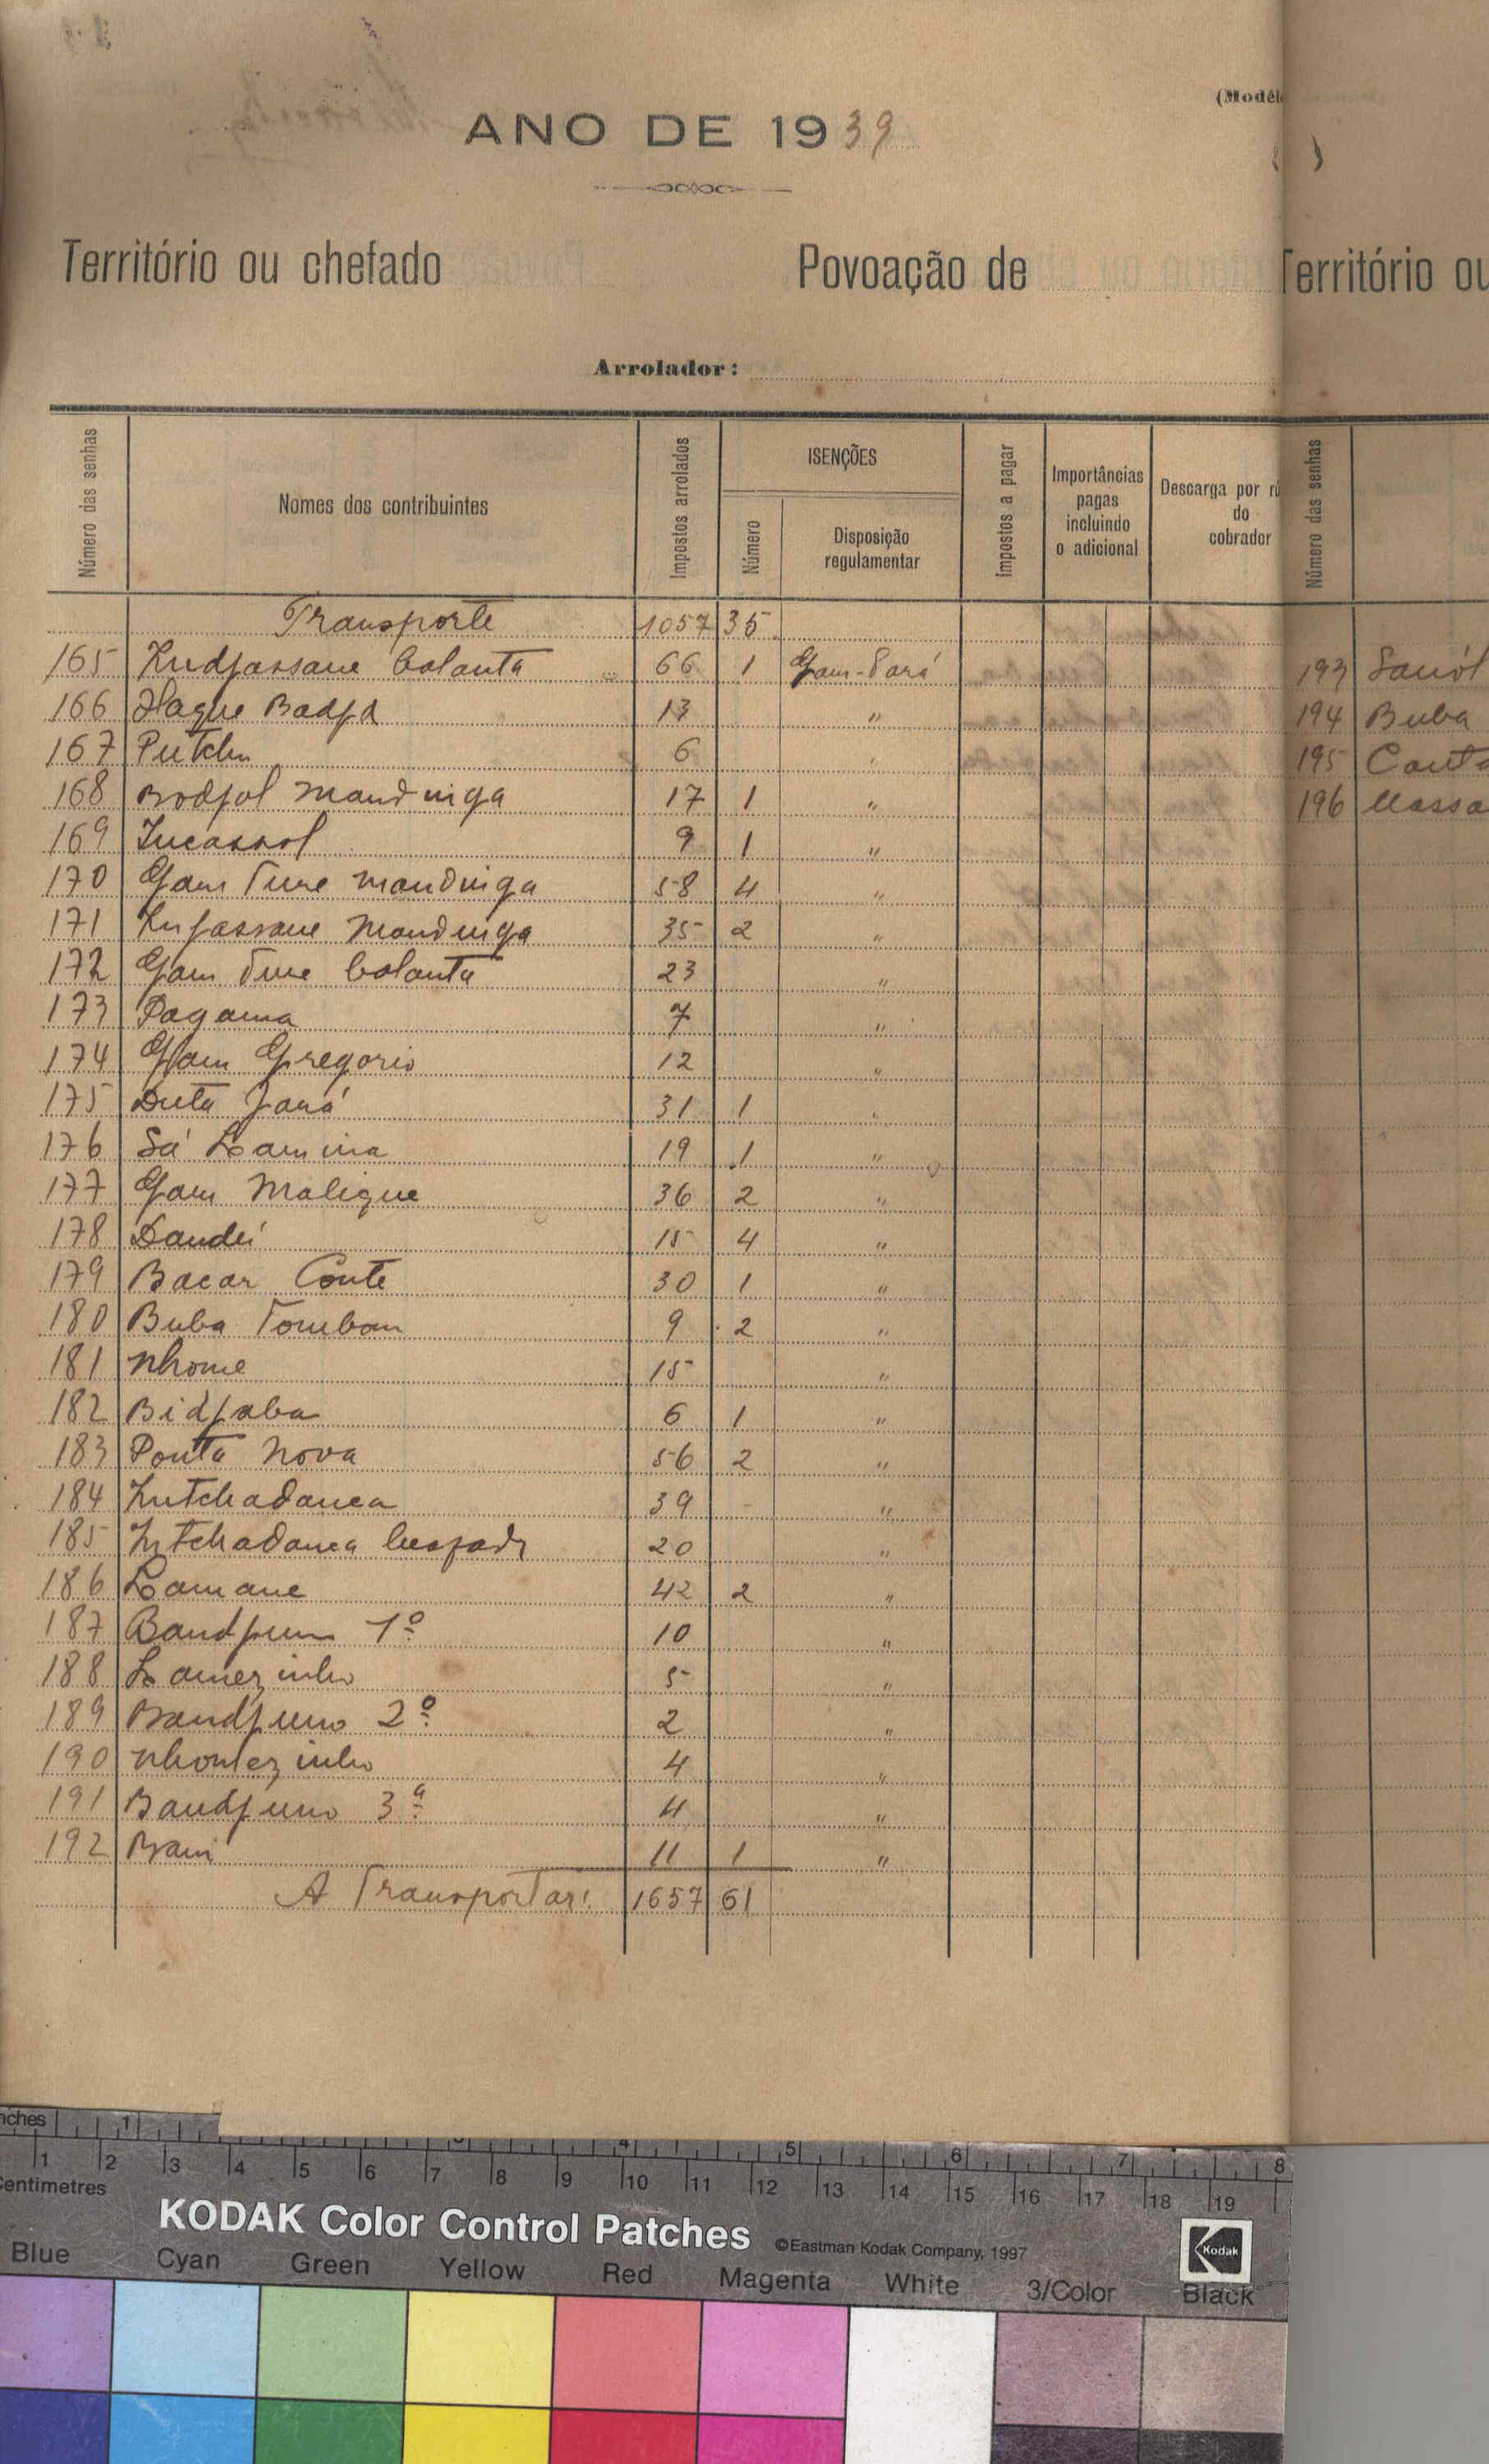 (Modêl
ANO DE 1939
Território ou chefado Povoação de
Território ou
Arrolador:
Número das senhas
Nomes dos contribuintes
Impostos arrolados
ISENÇÕES
Número
Disposição regulamentar
Impostos a pagar
Importâncias pagas incluindo o adicional
Descarga por rú do cobrador
Número das senhas
Transporte 1057 35
165 balanta 66 1 Gam-Pará
166 Badjá 13 "
167 6 "
168 Brodjol mandinga 17 1 "
169 9 1 "
170 Gam Ture mandinga 58 4 "
171 mandinga 35 2 "
172 Gam Ture balanta 23 "
173 Pagama 7 "
174 Gam Gregorio 12 "
175 Duta Jará 31 1 "
176 Sá Lamina 19 1 "
177 Gam Malique 36 2 "
178 Dandú 15 4 "
179 Bacar Conte 30 1 "
180 Buba Tombom 9 2 "
181 Nhome 15 "
182 Bidjaba 6 1 "
183 Ponta Nova 56 2 "
184 39 - "
185 20 "
186 Lamane 42 2 "
187 1º 10 "
188 Lamezinho 5 "
189 Bandjuno 2º 2 "
190 Nhomezinho 4 "
191 Bandjuno 3ª 4 "
192 Brami 11 1 "
A Transportar: 1657 61
193
194 Buba
195
196
nches 1 4 5 6 7 8
1 2 3 4 5 6 7 8 9 10 11 12 13 14 15 16 17 18 19
Centimetres
KODAK Color Control Patches ©Eastman Kodak Company, 1997 Kodak
Blue Cyan Green Yellow Red Magenta White 3/Color Black